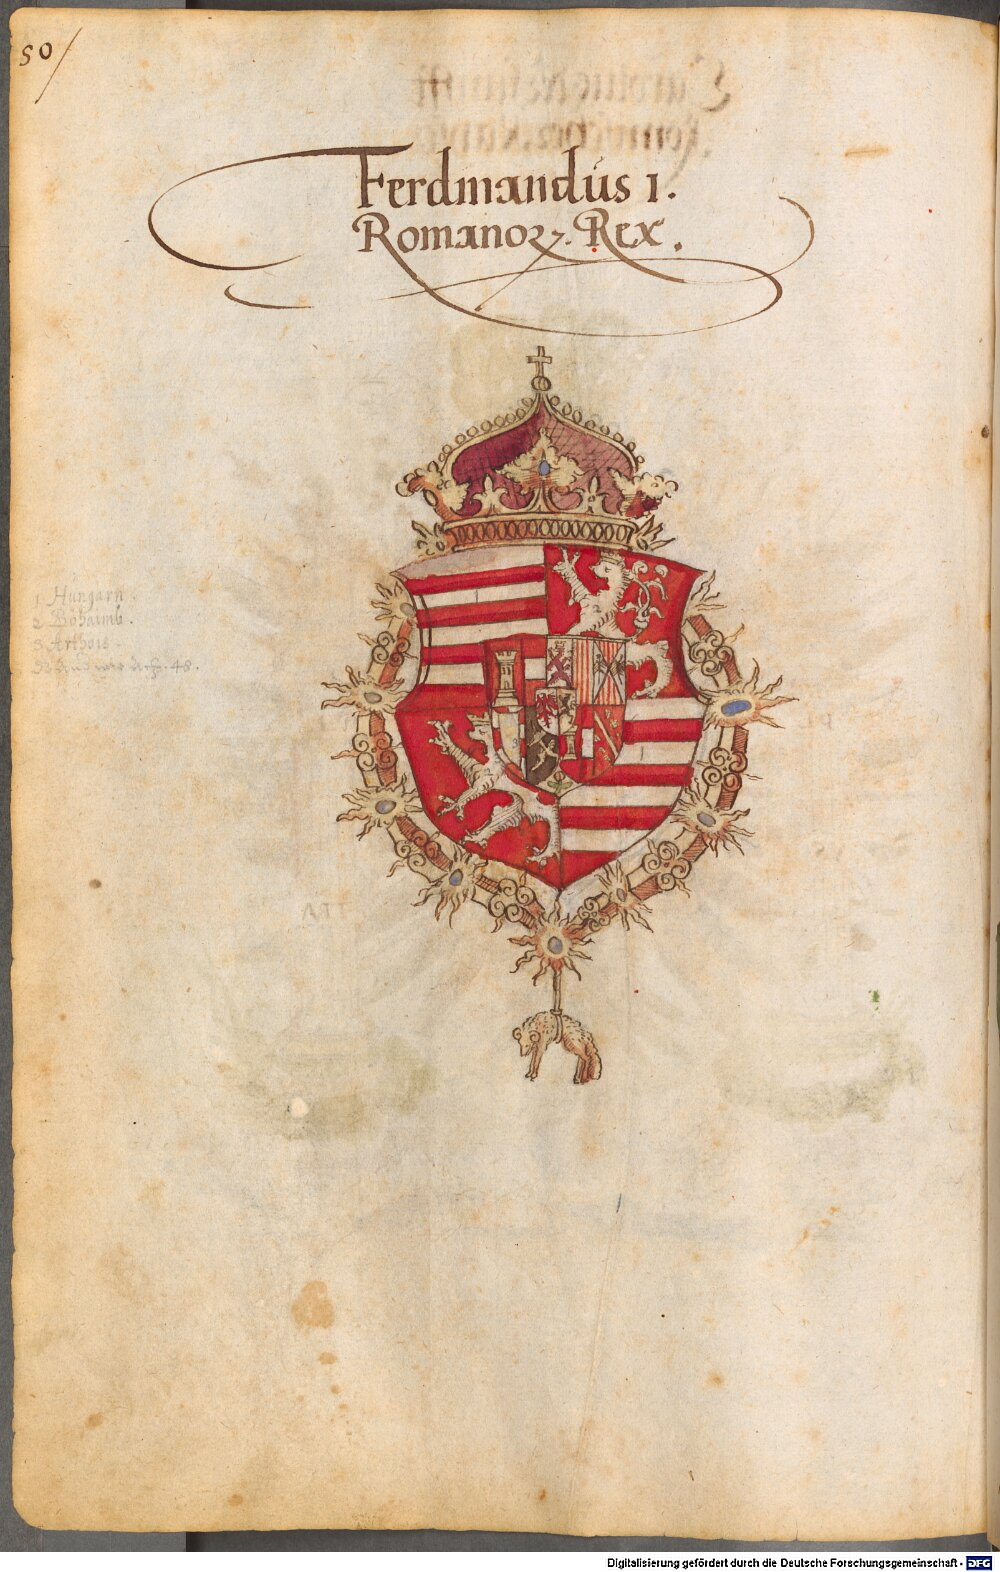 50/
Ferdinandus 1.
Romanoꝝ. Rex.
1 Hungarn.
2 Böhaimb.
3 Arthois
48.
Digitalisierung gefördert durch die Deutsche Forschungsgemeinschaft - DFG